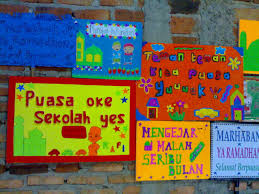 Teman teman
kita puasa
yuuuk!!
Puasa oke
Sekolah yes
RAFI
MENGEJAR
MALAM
SERIBU
BULAN
MARHABAN
YA RAMADHAN
Selamat Berpuasa